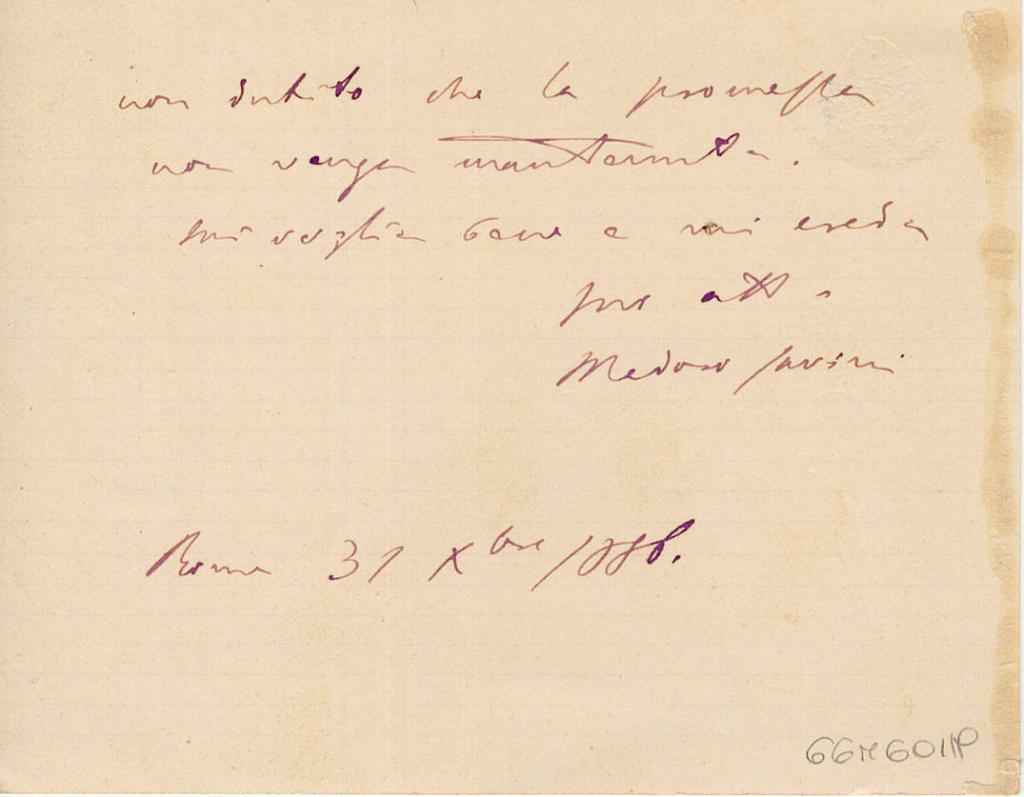 non dubito che la promessa
non venga mantenuta.
mi voglia bene e mi creda
suo
Medoro Savini
Roma 31 Xbre 1886.